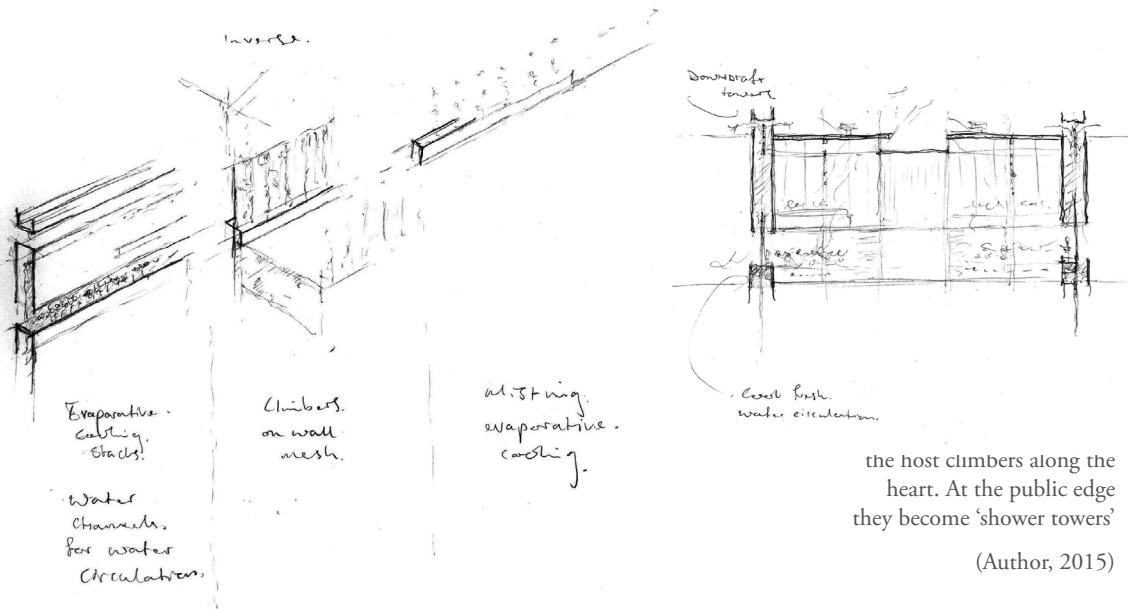 Inverse.
Downdraft
towers
Evaporative.
cooling.
stacks.
Water
channels.
for water
circulation.
Climbers.
on wall
mesh.
Misting.
evaporative.
cooling.
fresh.
water circulation.
the host climbers along the
heart. At the public edge
they become ‘shower towers’
(Author, 2015)